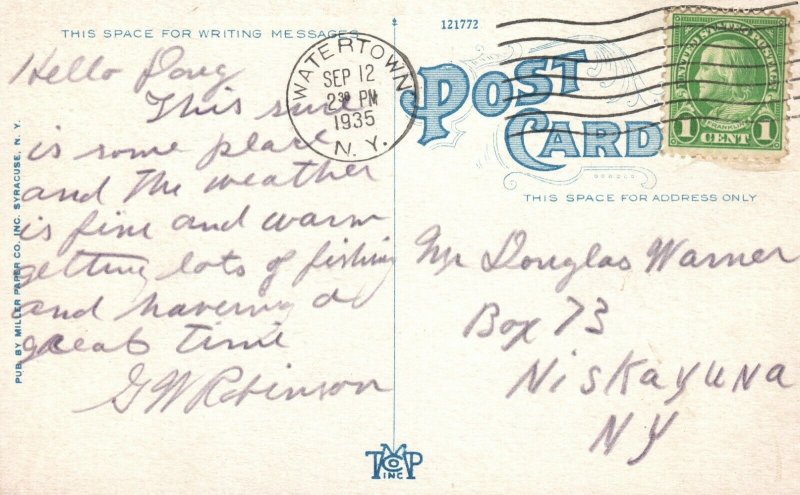 THIS SPACE FOR WRITING MESSAGES
Hello Doug
This sure
is some place
and the weather
is fine and warm
getting lots of fishing
and havering a
great time
G W Robinson
PUB. BY MILLER PAPER CO., INC. SYRACUSE, N. Y.
121772
WATERTOWN
SEP 12
2 30 PM
1935
N. Y.
POST
CARD
UNITED STATES POSTAGE
FRANKLIN
1 CENT 1
THIS SPACE FOR ADDRESS ONLY
Mr Douglas Warner
Box 73
Niskayuna
NY
M
T CO P
INC